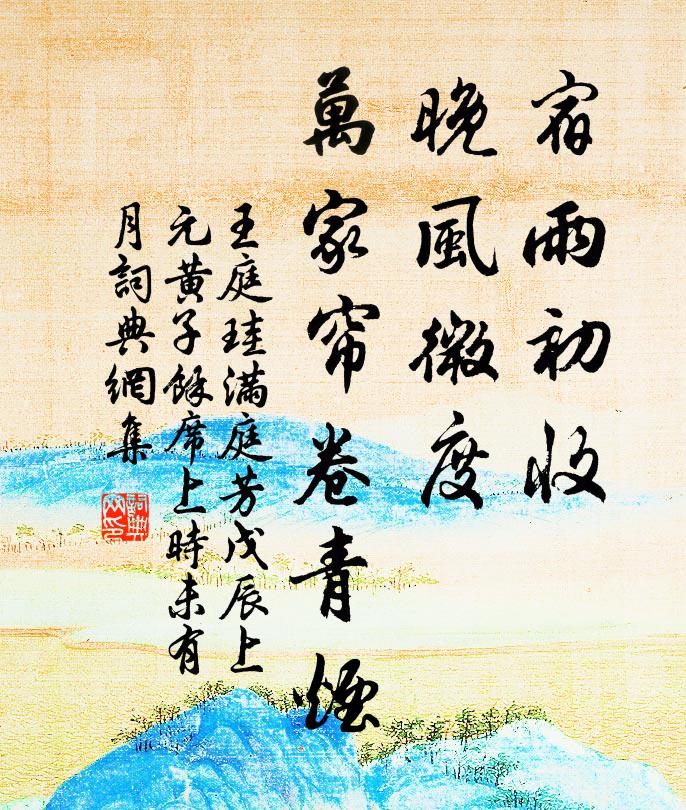 宿雨初收
晚風微度
萬家帘卷青煙
王庭珪滿庭芳戊辰上
元黃子餘席上時未有
月詞典網集